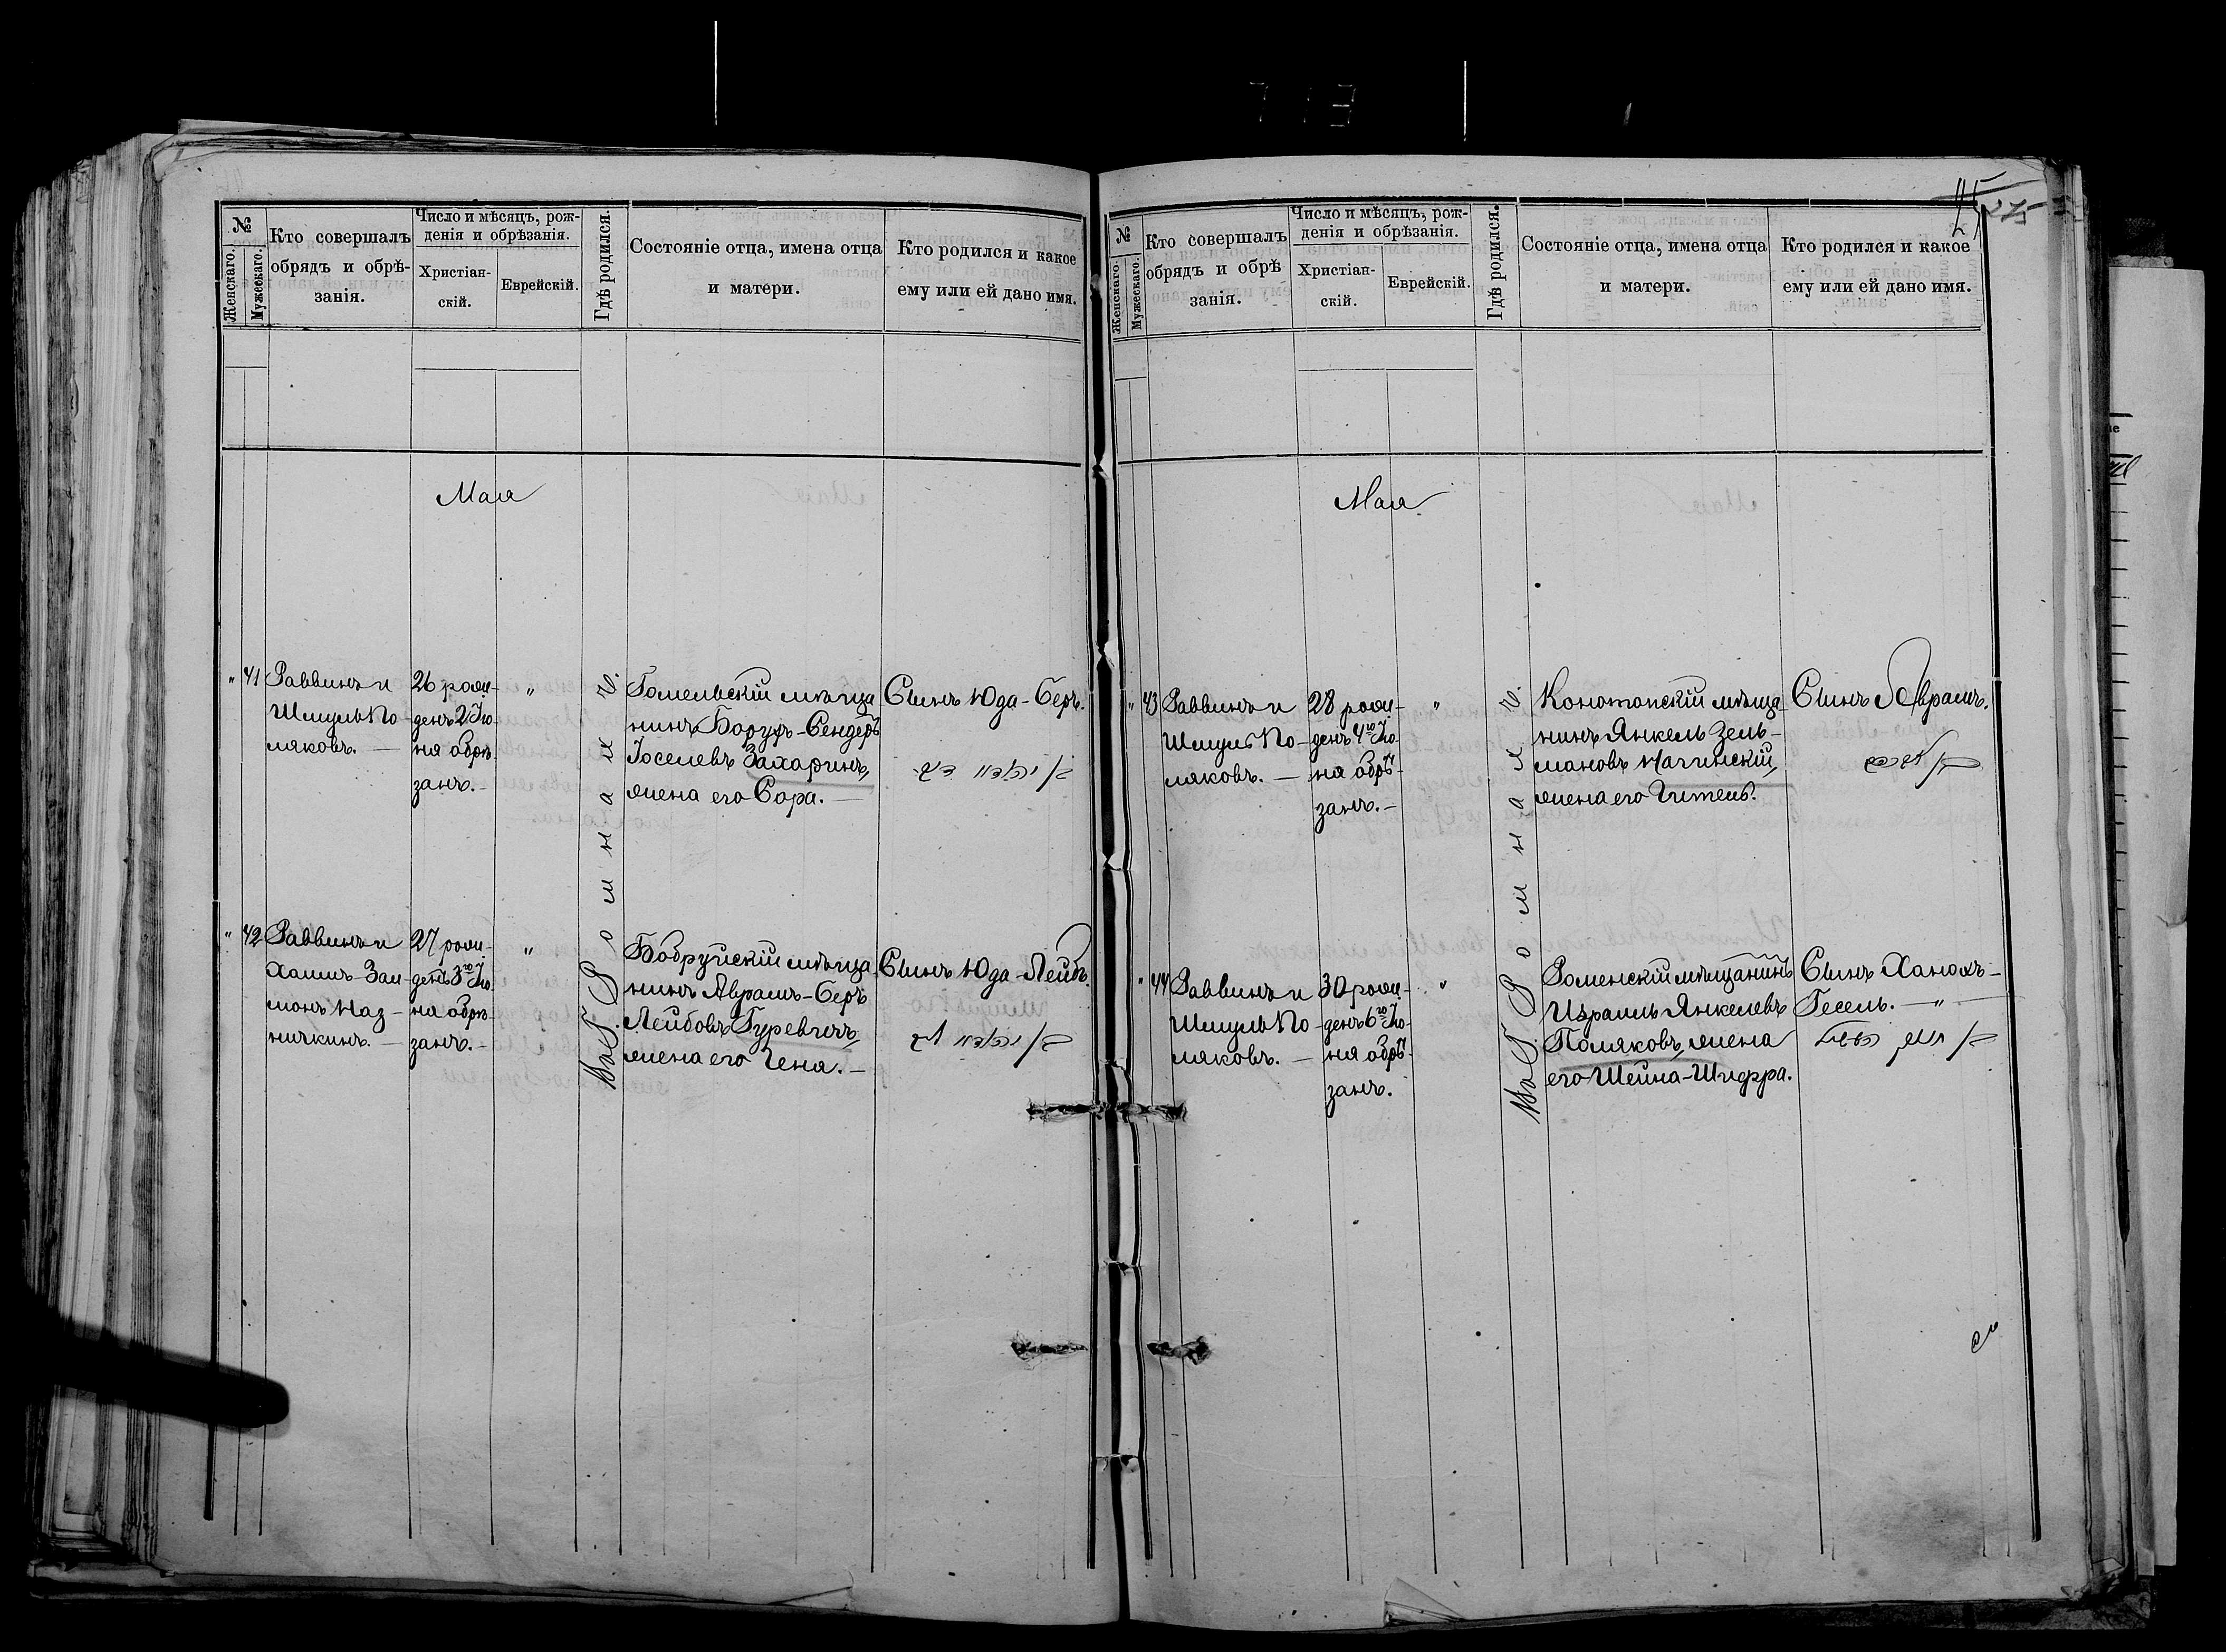 713
275
№
Женскаго.
Мужескаго.
Кто совершалъ
обрядъ и обрѣ-
занія.
Число и мѣсяцъ, рож-
денія и обрѣзанія.
Христіан-
скій.
Еврейскій.
Гдѣ родился.
Состояніе отца, имена отца
и матери.
Кто родился и какое
ему или ей дано имя.
Мая
" 41
Раввинъ и
Шмуль По-
ляковъ. —
26 рож-
денъ 2 Ію-
ня обрѣ-
занъ. —
"
Гомельскій мѣща
нинъ Борухъ-Сендеръ
Іоселевъ Захаринъ,
жена его Сора. —
Сынъ Юда-Беръ.
" 42
Раввинъ и
Хаимъ-Зал
монъ Наз-
ничкинъ. —
27 рож-
денъ 3го Ію-
ня обрѣ-
занъ. —
"
Бобруйскій мѣща
нинъ Абрамъ-Беръ
Лейбовъ Гуревичъ,
жена его Чена. —
Сынъ Юда-Лейбъ.
Въ Г. Ромнахъ.
№
Женскаго.
Мужескаго.
Кто совершалъ
обрядъ и обрѣ
занія.
Число и мѣсяцъ, рож-
денія и обрѣзанія.
Христіан-
скій.
Еврейскій.
Гдѣ родился.
Состояніе отца, имена отца
и матери.
Кто родился и какое
ему или ей дано имя.
Мая
" 43
Раввинъ и
Шмуль По-
ляковъ. —
28 рож-
денъ 4го Ію-
ня обрѣ-
занъ. —
"
Конотопскій мѣща
нинъ Янкель Зель-
мановъ Начинскій,
жена его Гитель.
Сынъ Абрамъ.
" 44
Раввинъ и
Шмуль По-
ляковъ. —
30 рож-
денъ 6го Ію-
ня обрѣ-
занъ.
"
Роменскій мѣщанинъ
Израиль Янкелевъ
Поляковъ, жена
его Шейна-Шифра.
Сынъ Ханохъ-
Гесель. — " —
Въ Г. Ромнахъ.